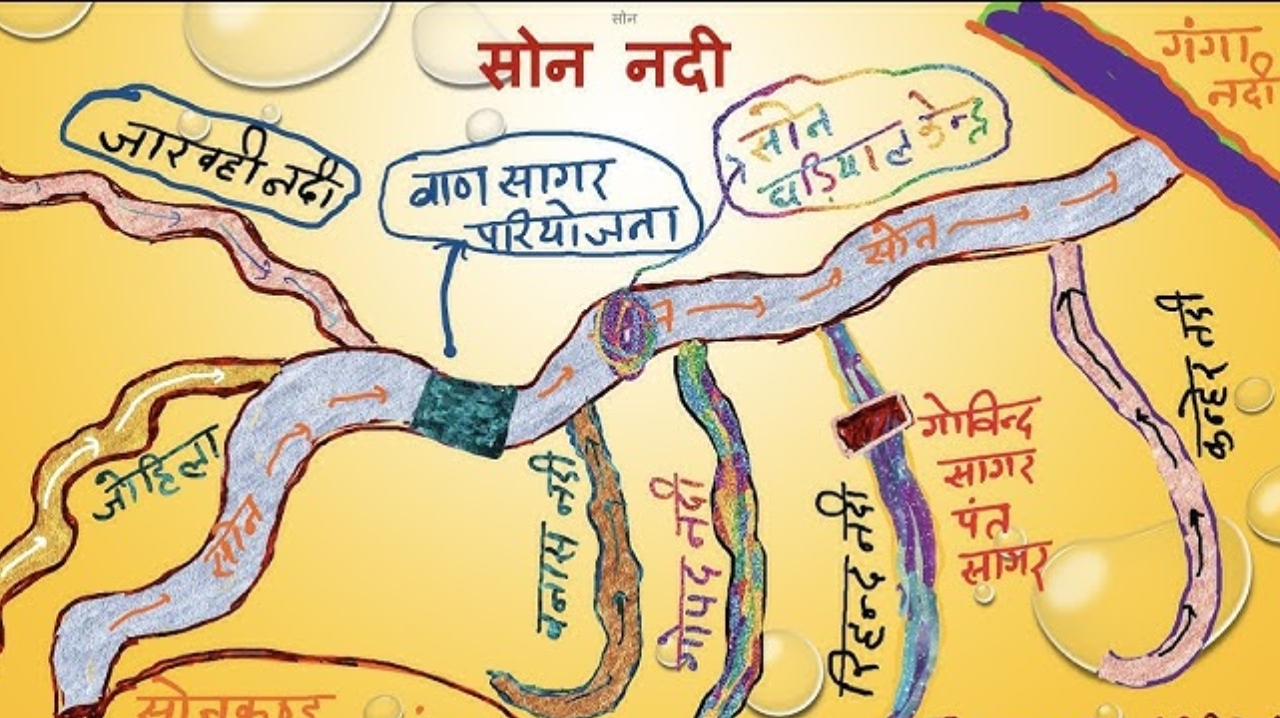 सोन
सोन नदी
गंगा
नदी
जारवही नदी
वाण सागर
परियोजना
सोन
घड़ियाल केन्द्र
सोन
न
जोहिला
सोन
बनास नदी
गोपद नदी
रिहन्द नदी
गोविन्द
सागर
पंत
सागर
कन्हेर नदी
सोनकुण्ड